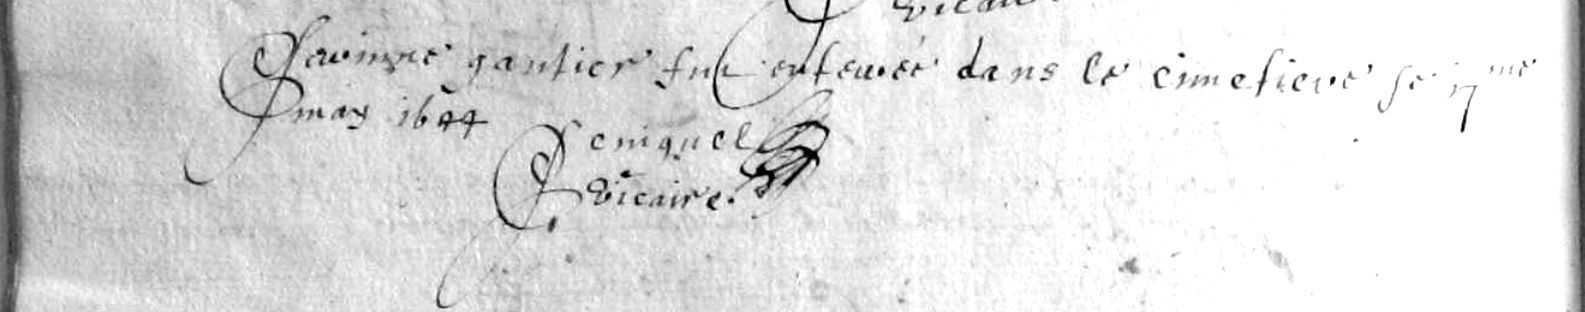 vicaire
gautier fut enterrée dans le cimetiere le 17me
may 1644
Seniquel
vicaire.